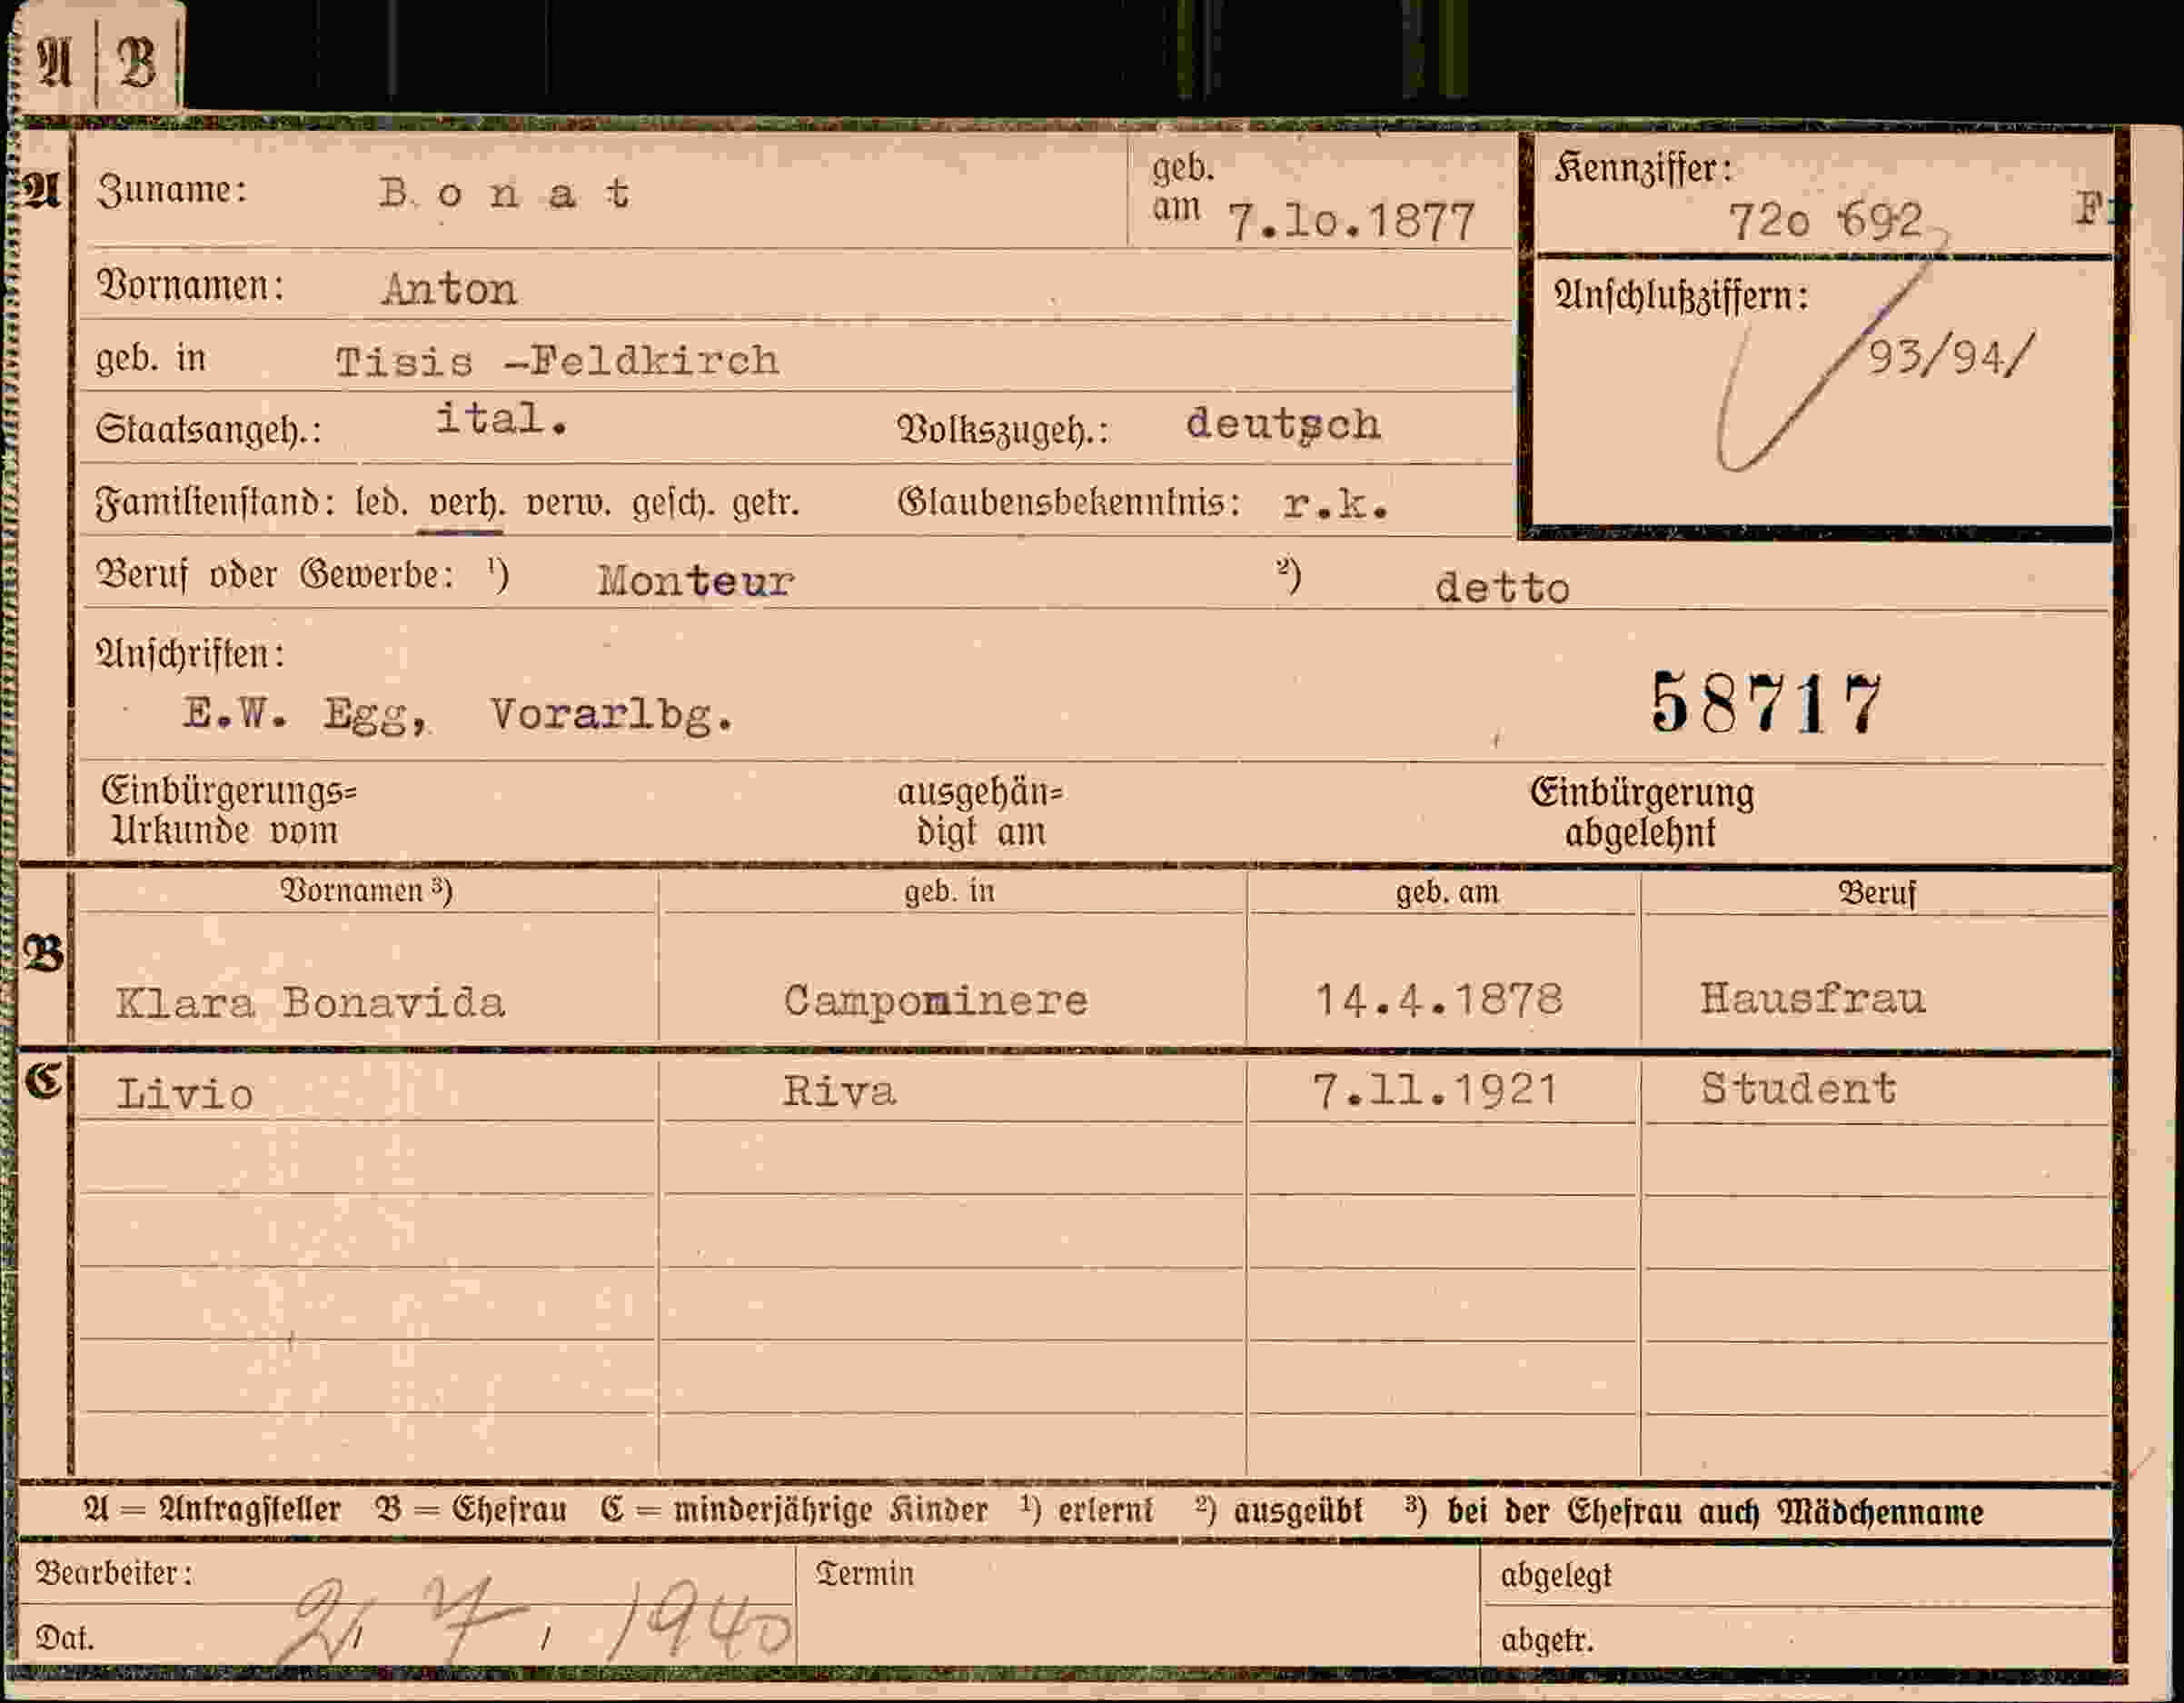 A | B
A Zuname: B o n a t geb. am 7.lo.1877 Kennziffer: 72o 692 F
Vornamen: Anton Anschlußziffern: 93/94/
geb. in Tisis -Feldkirch
Staatsangeh.: ital. Volkszugeh.: deutsch
Familienstand: led. verh. verw. gesch. getr. Glaubensbekenntnis: r.k.
Beruf oder Gewerbe: ¹) Monteur ²) detto
Anschriften:
E.W. Egg, Vorarlbg. 58717
Einbürgerungs= ausgehän= Einbürgerung
Urkunde vom digt am abgelehnt
Vornamen ³) geb. in geb. am Beruf
B Klara Bonavida Campominere 14.4.1878 Hausfrau
C Livio Riva 7.11.1921 Student
A = Antragsteller B = Ehefrau C = minderjährige Kinder ¹) erlernt ²) ausgeübt ³) bei der Ehefrau auch Mädchenname
Bearbeiter: Termin abgelegt
Dat. 2. 7. 1940 abgetr.